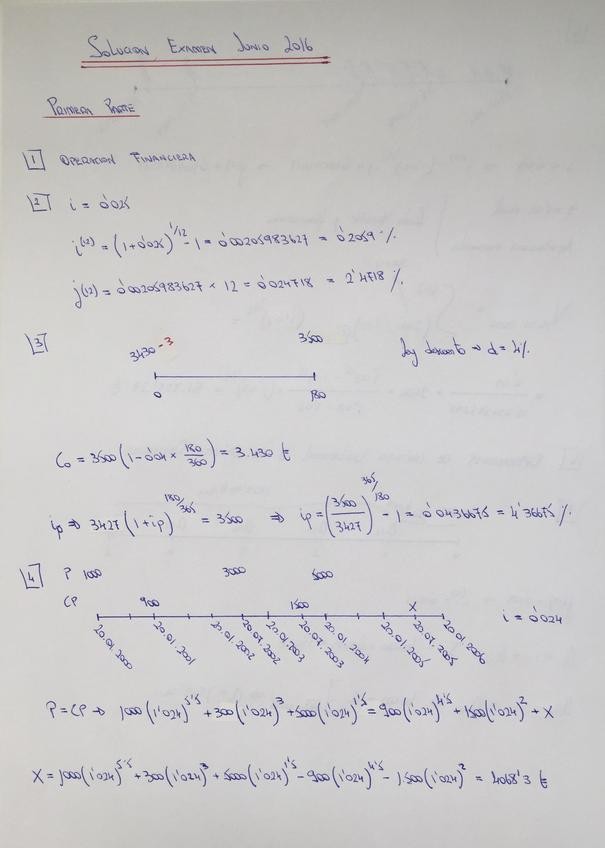 SOLUCION EXAMEN JUNIO 2016
PRIMERA PARTE
1 OPERACION FINANCIERA
2 i = 0'025
i^(12) = (1+0'025)^1/12 - 1 = 0'00205983627 = 0'2059 %.
j(12) = 0'00205983627 × 12 = 0'024718 = 2'4718 %.
3 3430 - 3 3500 Ley descuento → d = 4%.
0 180
C₀ = 3500 (1 - 0'04 × 180/360) = 3.430 €
ip ⇒ 3427 (1 + ip)^180/365 = 3500 ⇒ ip = (3500/3427)^365/180 - 1 = 0'0436675 = 4'36675 %.
4 P 1000 3000 5000
CP 900 1500 X i = 0'024
20.01.2000 20.01.2001 20.01.2002 20.07.2002 20.01.2003 20.07.2003 20.01.2004 20.01.2005 20.07.2005 20.01.2006
P = CP → 1000 (1'024)^5'5 + 300 (1'024)^3 + 5000 (1'024)^1'5 = 900 (1'024)^4'5 + 1500 (1'024)^2 + X
X = 1000 (1'024)^5'5 + 300 (1'024)^3 + 5000 (1'024)^1'5 - 900 (1'024)^4'5 - 1.500 (1'024)^2 = 4068'3 €